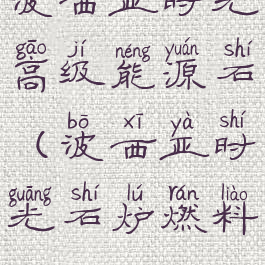 波西亚时光
gāo jí néng yuán shí
高级能源石
bō xī yà shí
（波西亚时
guāng shí lú rán liào
光石炉燃料